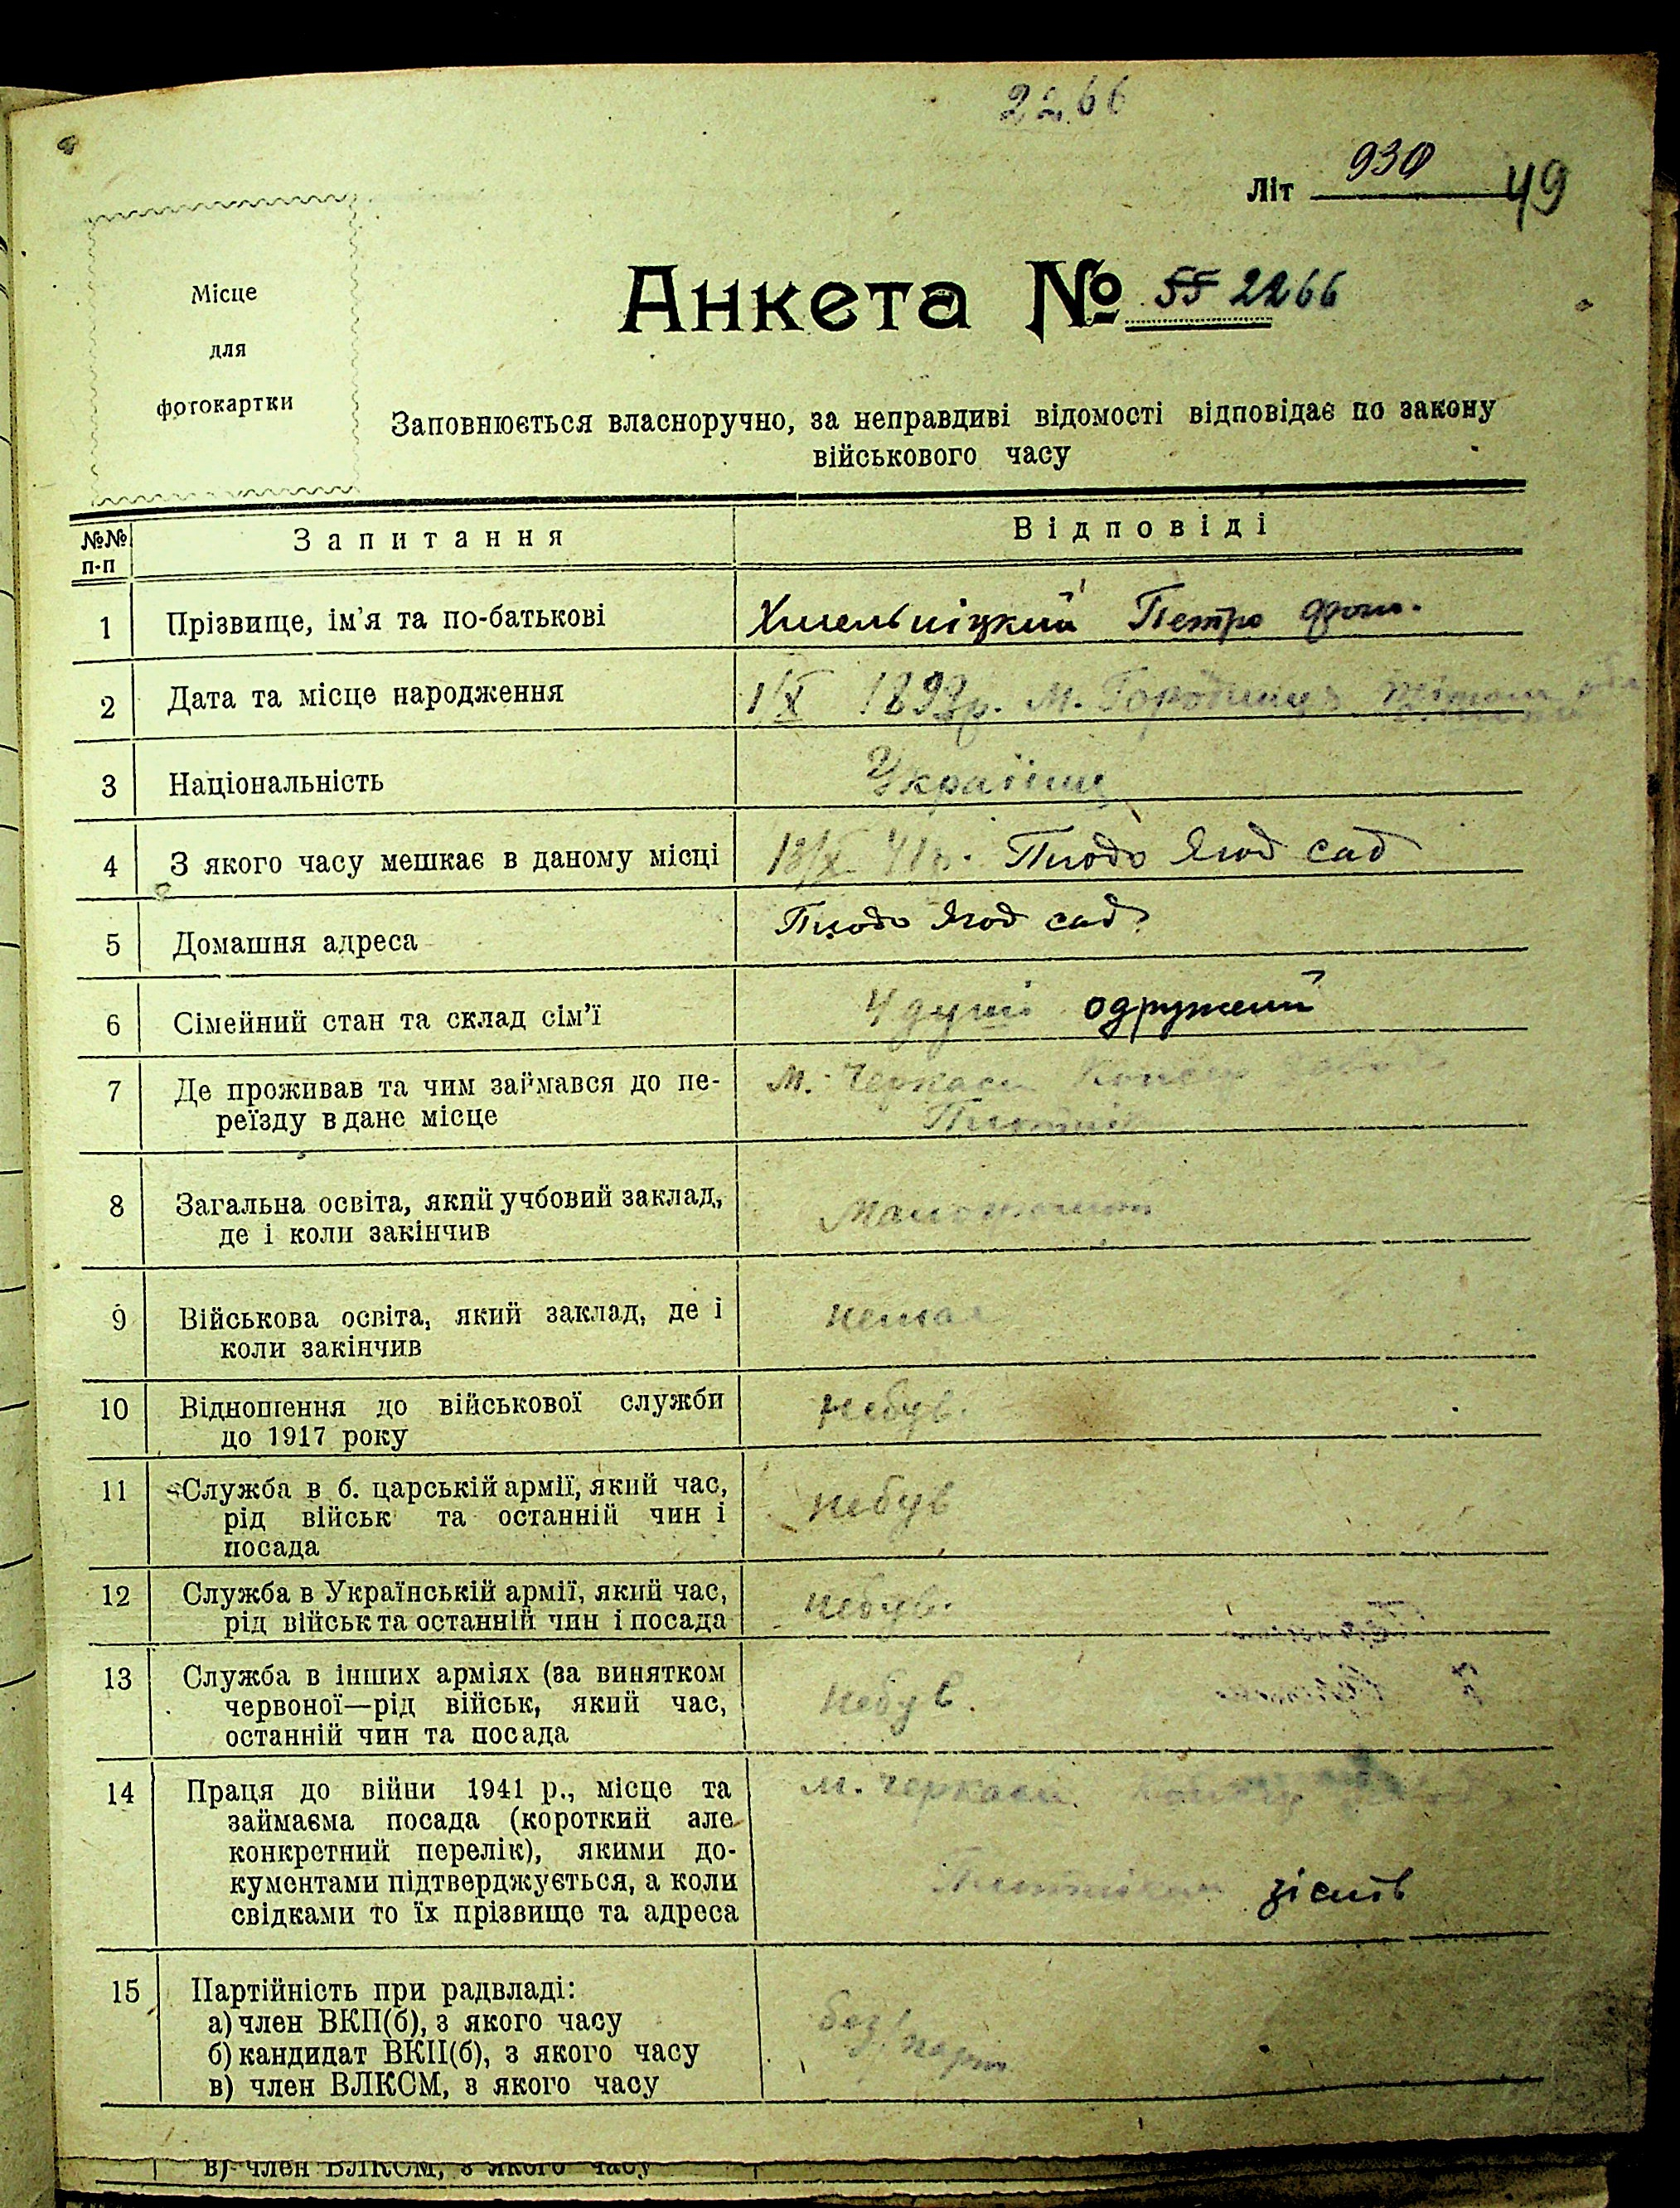 2266
Літ 930 49
Місце
для
фотокартки
Анкета № 55 2266
Заповнюється власноручно, за неправдиві відомості відповідає по закону
військового часу
№№ п-п
Запитання
Відповіді
1 Прізвище, ім'я та по-батькові Хмельніцкий Петро
2 Дата та місце народження 1/X 189 р. м. Городище
3 Національність Українец
4 З якого часу мешкає в даному місці 13/X 41р. Плодо Ягод сад
5 Домашня адреса Плодо Ягод сад
6 Сімейний стан та склад сім'ї 4 душі одружений
7 Де проживав та чим займався до пе- м. Черкаси Консер
реїзду в дане місце
8 Загальна освіта, який учбовий заклад,
де і коли закінчив
9 Військова освіта, який заклад, де і немає
коли закінчив
10 Відношення до військової служби небув.
до 1917 року
11 Служба в б. царській армії, який час, небув
рід військ та останній чин і
посада
12 Служба в Українській армії, який час, небув.
рід військ та останній чин і посада
13 Служба в інших арміях (за винятком небув.
червоної—рід військ, який час,
останній чин та посада
14 Праця до війни 1941 р., місце та м. Черкаси
займаєма посада (короткий але
конкретний перелік), якими до-
кументами підтверджується, а коли
свідками то їх прізвище та адреса
15 Партійність при радвладі:
а) член ВКП(б), з якого часу без/парт
б) кандидат ВКП(б), з якого часу
в) член ВЛКСМ, з якого часу
в) член ВЛКСМ, з якого часу